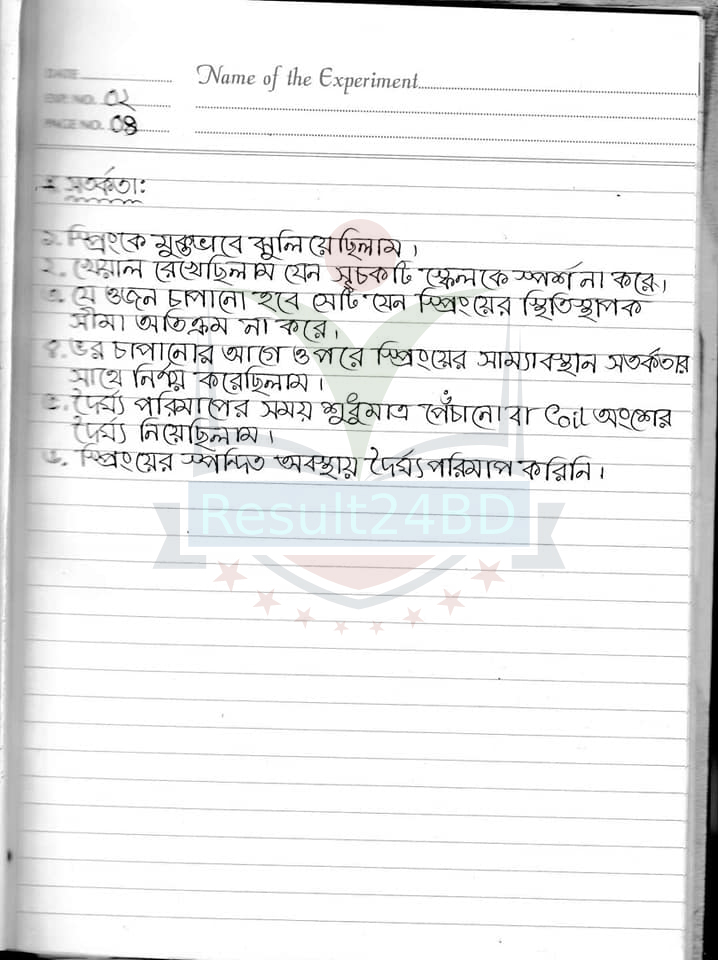 DATE
Name of the Experiment
EXP. NO. 02
PAGE NO. 08
* সতর্কতা:
১. স্প্রিংকে মুক্তভাবে ঝুলিয়েছিলাম।
২. খেয়াল রেখেছিলাম যেন সূচকটি স্কেলকে স্পর্শ না করে।
৩. যে ওজন চাপানো হবে সেটি যেন স্প্রিংয়ের স্থিতিস্থাপক
সীমা অতিক্রম না করে।
৪. ভর চাপানোর আগে ও পরে স্প্রিংয়ের সাম্যাবস্থান সতর্কতার
সাথে নির্ণয় করেছিলাম।
৫. দৈর্ঘ্য পরিমাপের সময় শুধুমাত্র পেঁচানো বা Coil অংশের
দৈর্ঘ্য নিয়েছিলাম।
৬. স্প্রিংয়ের স্পন্দিত অবস্থায় দৈর্ঘ্য পরিমাপ করিনি।
Result24BD